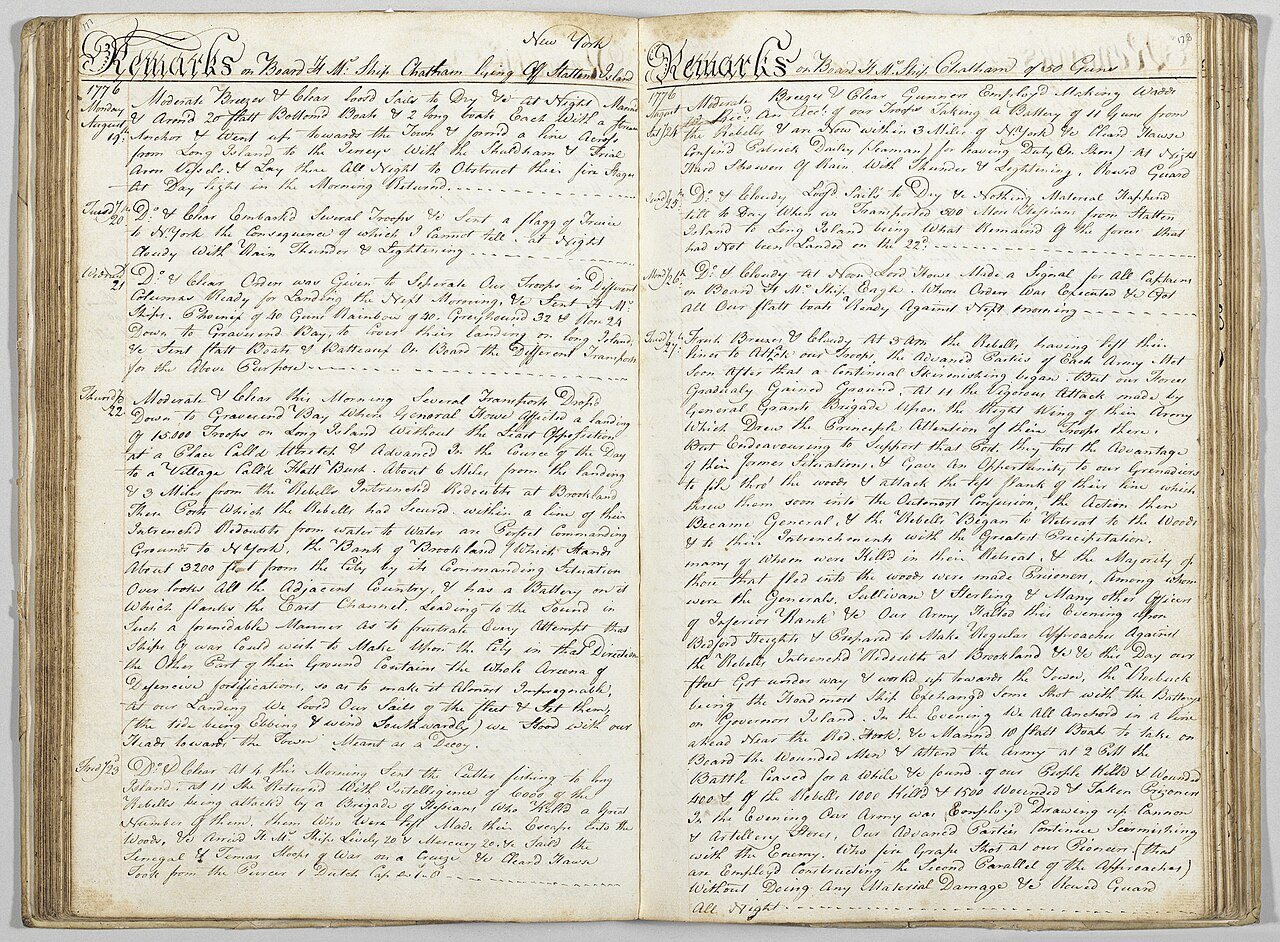 177
New York
Remarks on Board H Ms Ship Chatham lying Off Statten Island
1776
Monday August 19th
Moderate Breezes & Clear loosd Sails to Dry &c at Night Mannd
& Armd 20 flatt Bottomd Boats & 2 long boats Each With a
Anchor & Went up towards the Town & formd a line Across
from Long Island to the Jerseys With the Shuldham & Trial
Arm Vessels, & Lay there All Night to Obstruct their fire Stages
At Day light in the Morning Returnd
Tuesdy 20
Do & Clear Embarkd Several Troops &c Sent a flagg of Truice
to N York the Consequence of which I Cannot tell. at Night
Cloudy With Rain Thunder & Lightening
Wednesd 21
Do & Clear Orders was Given to Seperate Our Troops in Different
Columns Ready for Landing the Next Morning, &c Sent H Ms
Ships. Phoenix of 40 Guns Rainbow of 40. Greyhound 32 &
Down to Gravesend Bay, to Cover their landing on long Island,
&c Sent flatt Boats & Batteaux On Board the Different Transports
for the Above Purpose
Thursdy 22
Moderate & Clear this Morning Several Transports Dropd
Down to Gravesend Bay Where General Howe Affected a Landing
Of 15000 Troops on Long Island Without the Least Oppossition
at a Place Calld & Advancd In the Cource of the Day
to a Village Calld Flatt Bush. About 6 Miles, from the landing
& 3 Miles from the Rebells Intrenchd Redoubts at Brookland
These Posts Which the Rebells had Secured. within a line of their
Intrenchd Redoubts from water to Water are Perfect Commanding
Grounds to N York, the Bank of Brookland Which Stands
About 3200 feet from the City by its Commanding Situation
Over looks All the Adjacent Country, & has a Battery on it
Which flanks the East Channel, Leading to the Sound in
Such a formidable Manner as to frustrate Every Attempt that
Ships of war Could wish to Make Upon the City in that Direction
the Other Part of their Ground Contains the Whole Arcana of
Defencive fortifications, so as to make it Almost Impregnable,
At our Landing We loosd Our Sails of the fleet & Set them,
(the tide being Ebbing & wind Southwardly) we Stood with our
Heads towards the Town Meant as a Decoy.
Frid 23
Do & Clear At 4 this Morning Sent the Cutter fishing to long
Island. at 11 She Returnd With Intelligence of 6000 of the
Rebells being attackd by a Brigade of Hessians Who Killd a Great
Number of them, them Who Were left Made their Escape Into the
Woods, &c Arrivd H Ms Ships Lively 20 & Mercury 20. &c Saild the
Senegal & Tamar Sloops of War on a Cruize &c Cleard Hawse
Took from the Purcer 1 Dutch Cap
178
Remarks on Board H Ms Ship Chatham of 50 Guns
1776
August
Sat 24
Moderate Breezes & Clear Gunners Employd Making Wadds
&c Recd An Acct of our Troops Taking a Battery of 11 Guns from
the Rebells & are Now within 3 Miles of N York &c Cleard Hawse
Confind Patrick Dailey (Seaman) for leaving Duty On Shore) At Night
Hard Showers Of Rain With Thunder & Lightening. Rowed Guard
Sund 25th
Do & Cloudy Loosd Sails to Dry &c Nothing Material Happend
till to Day When we Transported 500 Men Hessians from Statten
Island to Long Island being What Remaind Of the forces that
had Not been Landed on the 22d
Mond 26th
Do & Cloudy At Noon Lord Howe Made a Signal for All Captains
on Board H Ms Ship Eagle. Whose Orders Was Executed &c Got
All Our flatt boats Ready Against Next Morning
Tuesd 27th
Fresh Breezes & Cloudy At 3 AM the Rebells having left their
lines to Attack our Troops, the Advanced Parties of Each Army Met
Soon After that a Continual Skirmishing began. But our Forces
Gradualy Gained Ground. At 11 the Vigorous Attack made by
General Grants Brigade Upon the Right Wing of their Army
Which Drew the Principle Attention of their Troops there,
But Endeavouring to Support that Post, they lost the Advantage
of their former Situations, & Gave An Opportunity to our Grenadiers
to file thro' the woods & attack the left flank of their line which
threw them soon into the Outmost Confusion, the Action then
Became General, & the Rebells Began to Retreat to the Woods
& to their Intrenchments with the Greatest Precipitation.
many of Whom were Killd in their Retreat, & the Majority of
those that fled into the woods were made Prisoners, Among whom
were the Generals, Sullivan & Sterling & Many other Officers
of Inferior Rank &c Our Army Halted this Evening upon
Bedford Heights & Prepared to Make Regular Approaches Against
the Rebells Intrenchd Redoubts at Brookland &c &c this Day our
fleet Got under way & workd up towards the Town, the Roebuck
being the Headmost Ship Exchangd Some Shot with the Batterys
on Governors Island. In the Evening We All Anchord in a line
ahead Near the Red Hook, &c Mannd 10 flatt Boats to take on
Board the Wounded Men & attend the Army at 2 PM the
Battle Ceased for a While &c found of our People Killd & Wounded
400 & Of the Rebells 1000 Killd & 1500 Wounded & Taken Prisoners
In the Evening Our Army was Employd Drawing up Cannon
& Artillery Stores, Our Advanced Parties Continue Scirmishing
with the Enemy. Who fire Grape Shot at our Pioneers (that
are Employd Constructing the Second Parallel of the Approaches)
Without Doing Any Material Damage &c Rowed Guard
All Night